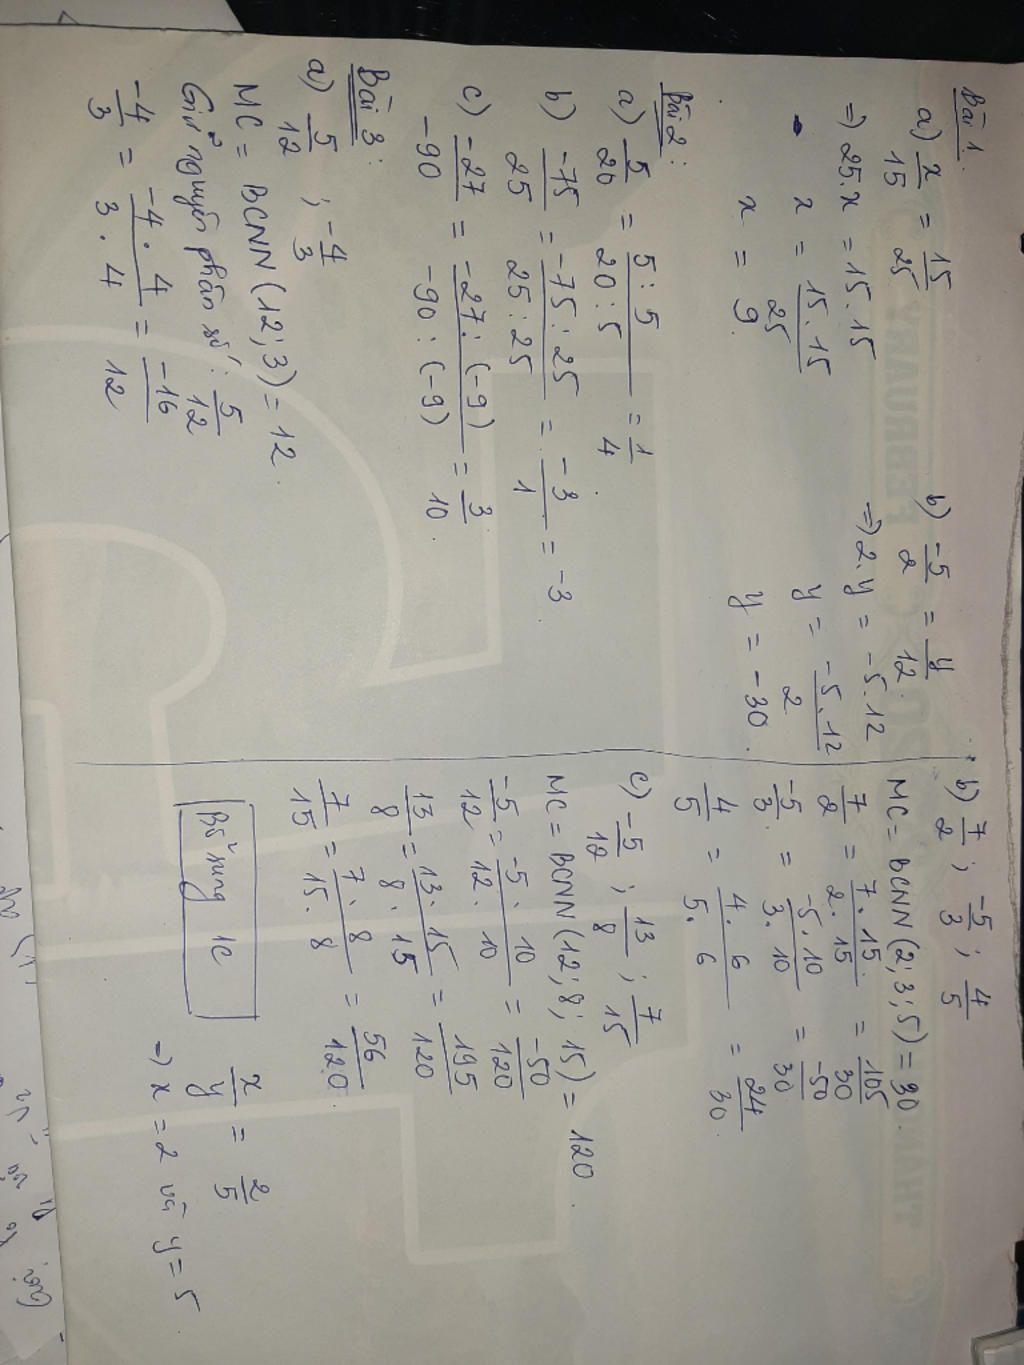 Bài 1.
a) x/15 = 15/25
=> 25.x = 15.15
x = 15.15/25
x = 9.
b) -5/2 = y/12.
=> 2.y = -5.12
y = -5.12/2
y = -30.
Bài 2:
a) 5/20 = 5:5/20:5 = 1/4.
b) -75/25 = -75:25/25:25 = -3/1 = -3
c) -27/-90 = -27:(-9)/-90:(-9) = 3/10.
Bài 3:
a) 5/12 ; -4/3
MC = BCNN(12;3) = 12.
Giữ nguyên phân số: 5/12
-4/3 = -4.4/3.4 = -16/12
b) 7/2 ; -5/3 ; 4/5
MC = BCNN(2;3;5) = 30.
7/2 = 7.15/2.15 = 105/30
-5/3 = -5.10/3.10 = -50/30
4/5 = 4.6/5.6 = 24/30.
c) -5/12 ; 13/8 ; 7/15
MC = BCNN(12; 8; 15) = 120.
-5/12 = -5.10/12.10 = -50/120
13/8 = 13.15/8.15 = 195/120
7/15 = 7.8/15.8 = 56/120
Bổ sung 1c
x/y = 2/5
=> x = 2 và y = 5